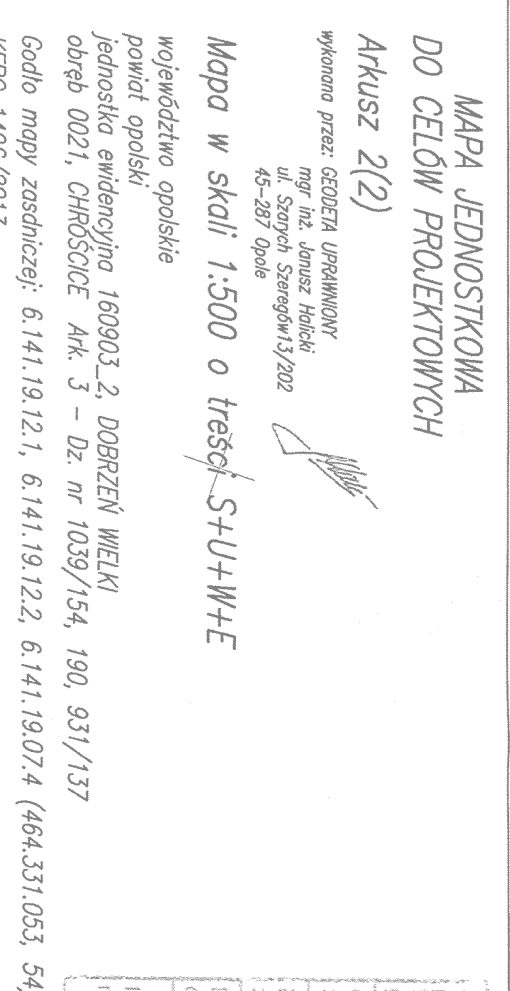 MAPA JEDNOSTKOWA
DO CELÓW PROJEKTOWYCH
Arkusz 2(2)
wykonana przez: GEODETA UPRAWNIONY
mgr inż. Janusz Halicki
ul. Szarych Szeregów13/202
45-287 Opole
Mapa w skali 1:500 o treści S+U+W+E
województwo opolskie
powiat opolski
jednostka ewidencyjna 160903_2, DOBRZEŃ WIELKI
obręb 0021, CHRÓŚCICE Ark. 3 - Dz. nr 1039/154, 190, 931/137
Godło mapy zasdniczej: 6.141.19.12.1, 6.141.19.12.2, 6.141.19.07.4 (464.331.053, 54,